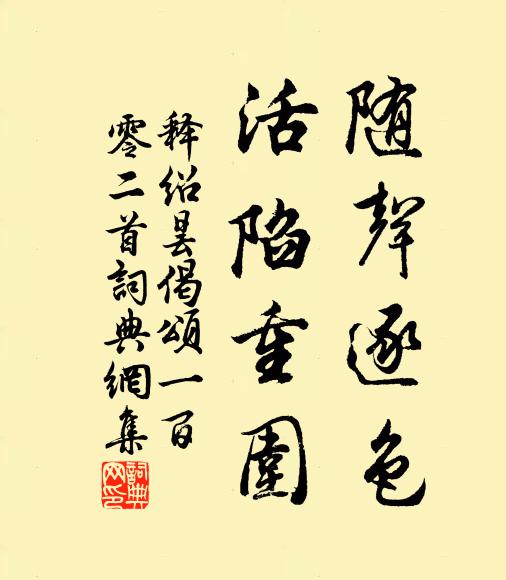 随聲逐色
活陷重圍
釋紹曇偈頌一百
零二首詞典網集
詞典網印